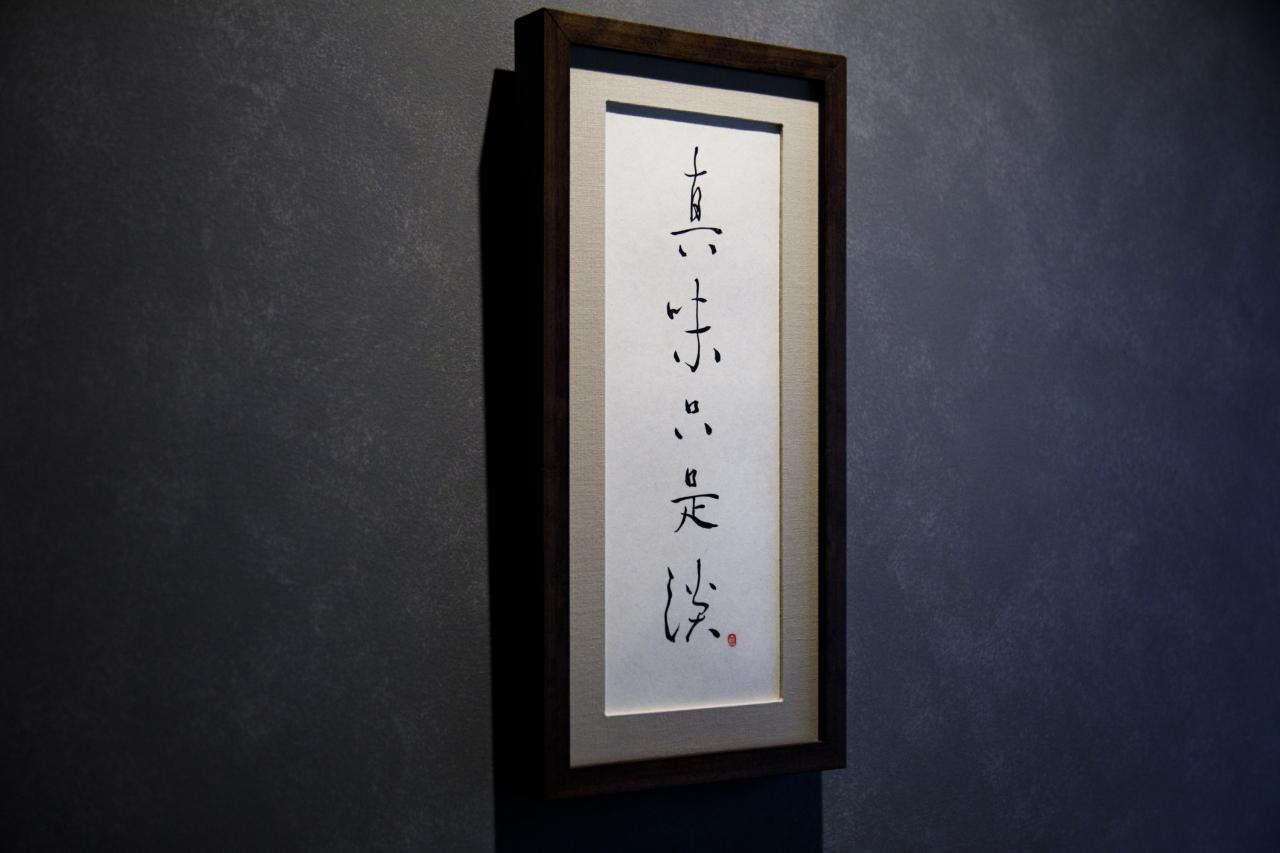 真味只是淡